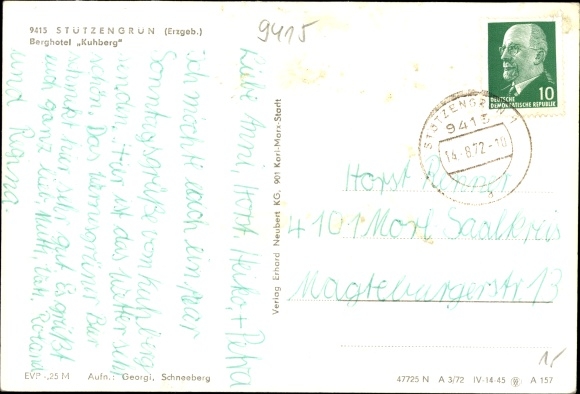 9415 STÜTZENGRÜN (Erzgeb.)
Berghotel „Kuhberg“
9415
Liebe Anni, Horst, Heiko, + Petra
ich möchte euch ein paar
Sonntagsgrüße vom Kuhberg
senden. Hier ist das Wetter sehr
schön. Das Bier
schmeckt hier sehr gut. Es grüßt
euch ganz lieb, Mutti, Vati, Roland
und Regina.
Verlag Erhard Neubert KG, 901 Karl-Marx-Stadt
DEUTSCHE
DEMOKRATISCHE REPUBLIK
10
STÜTZENGRÜN 1
9415
14.-8.72-10
Horst
4101 Morl Saalkreis
Magteburgerstr 13
EVP -,25 M Aufn.: Georgi, Schneeberg
47725 N A 3/72 IV-14-45 A 157